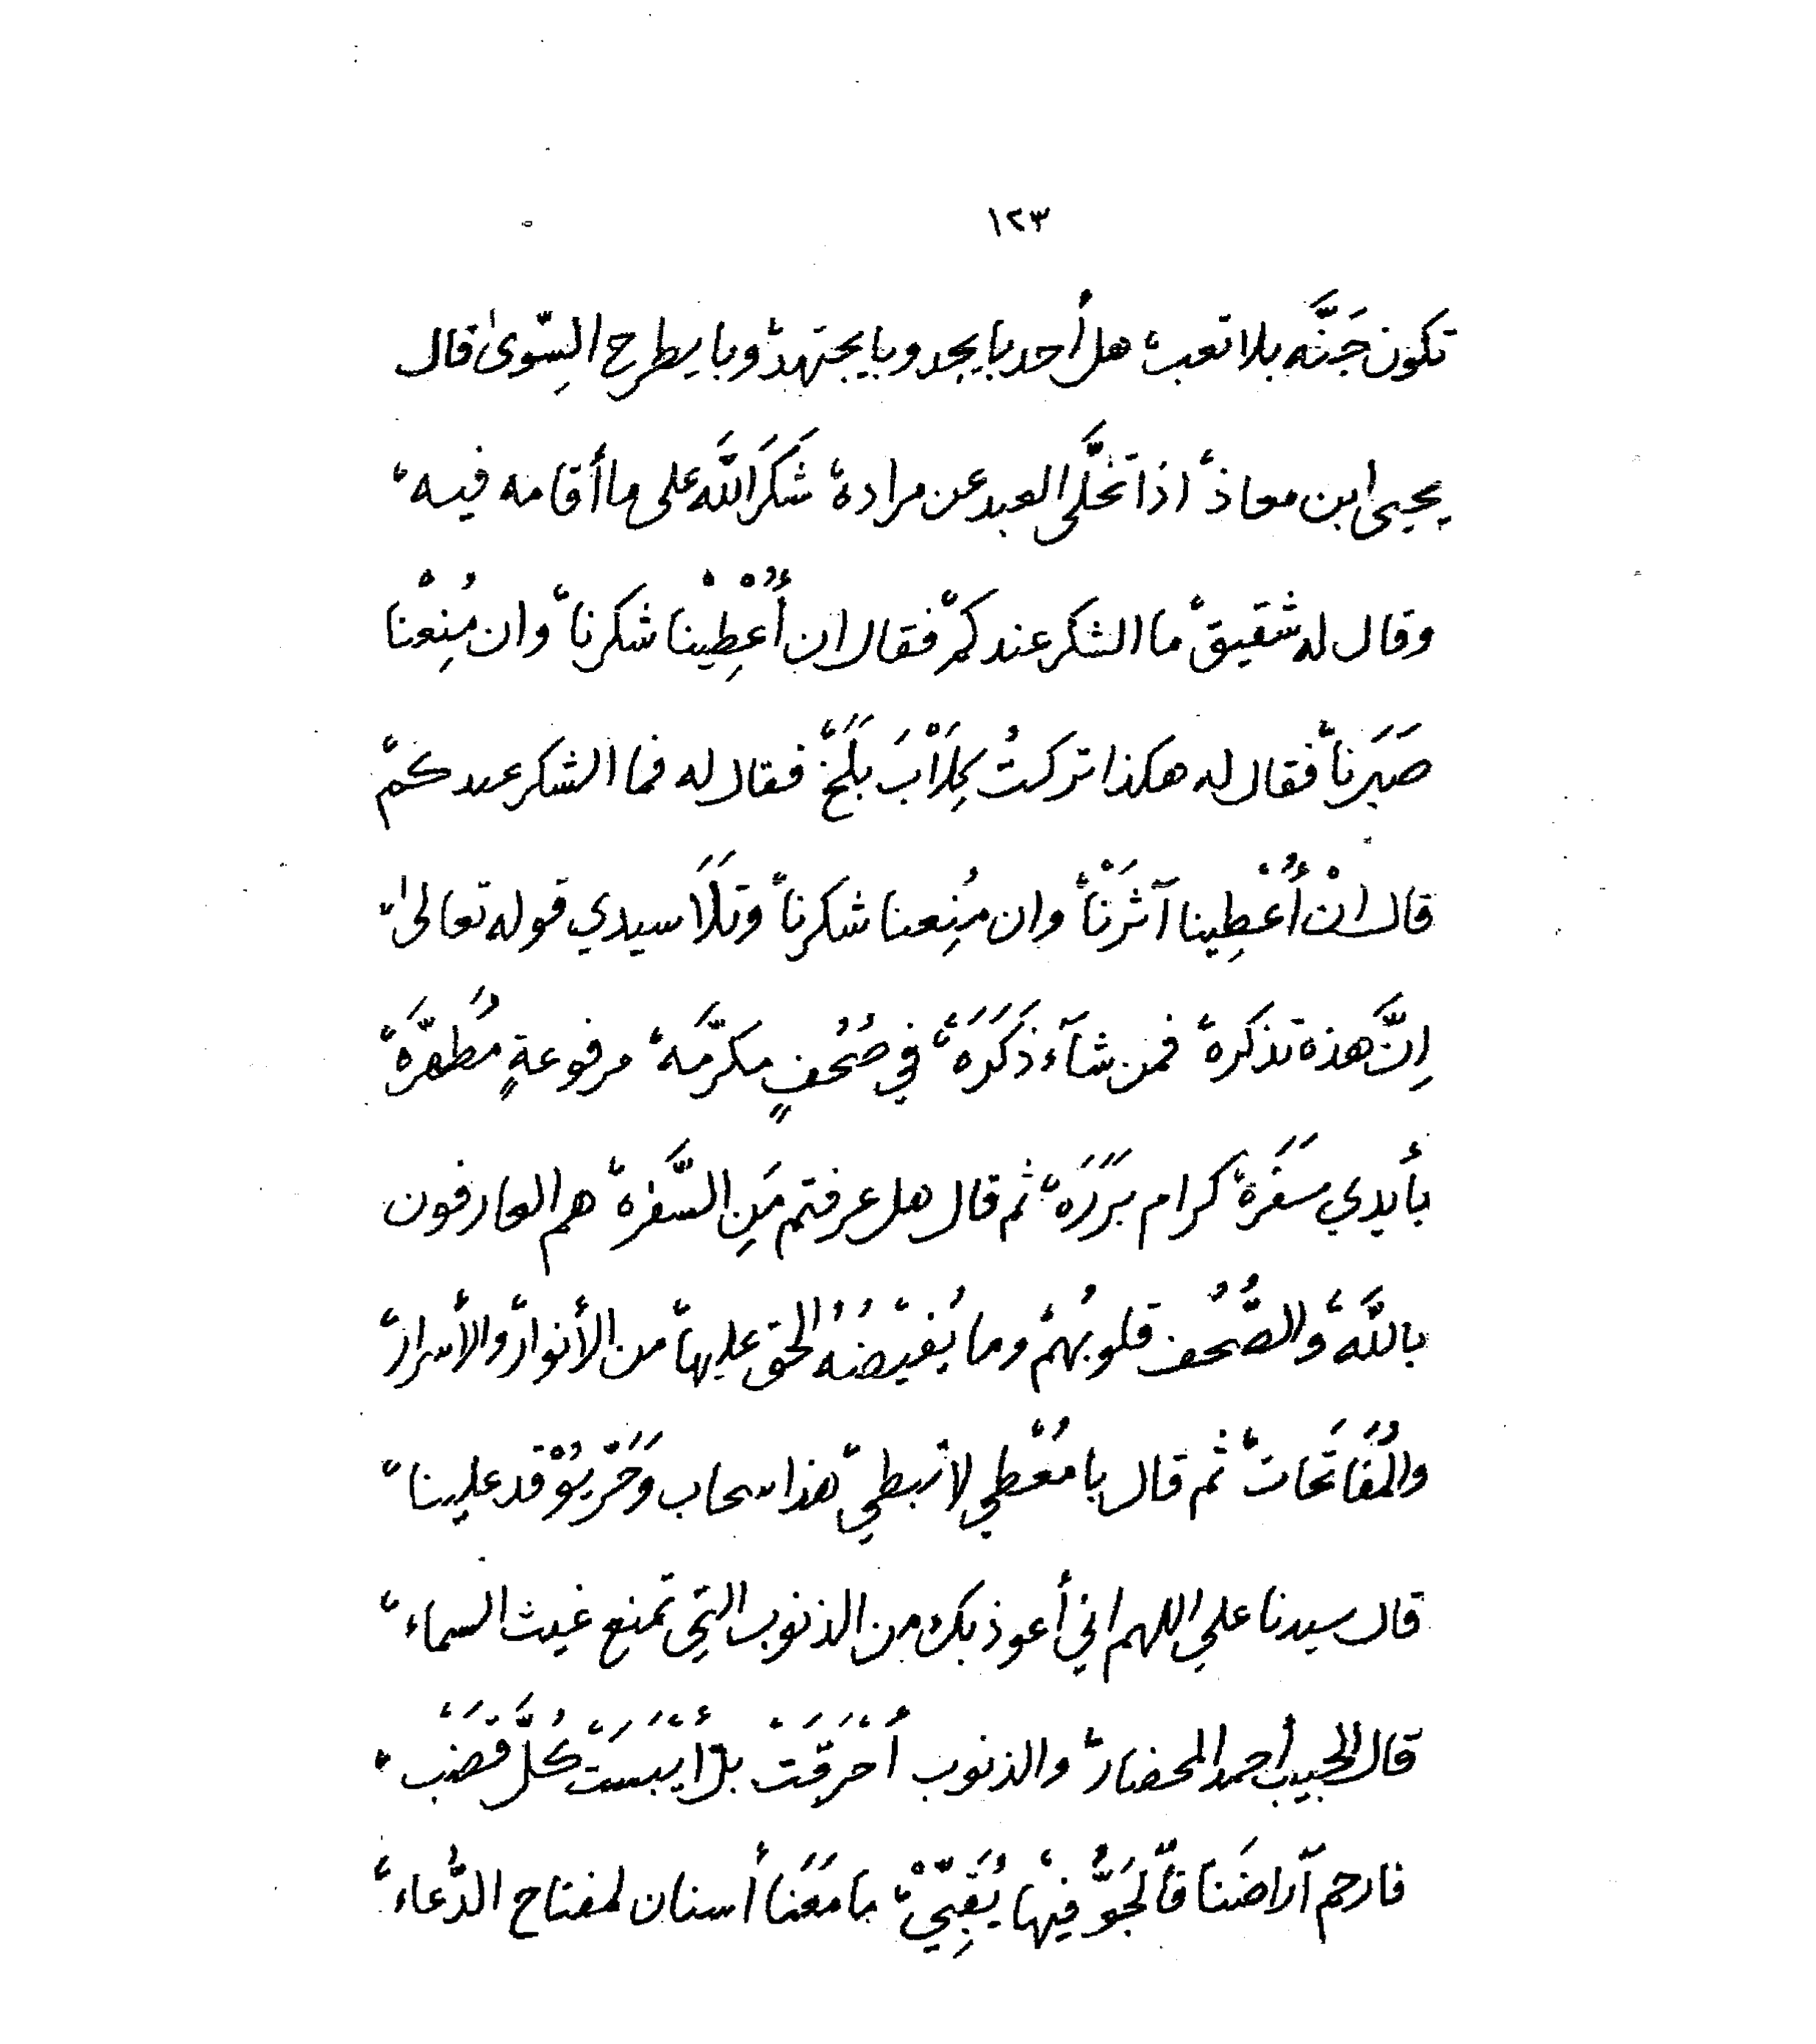 ١٢٣
تكون جَنَّه بلا تعب، هل أحد بايجد وبايجتهد، وبايطرح السِّوىٰ قال
يحيى ابن معاذ، اذا تخَلَّى العبد عن مراده، شَكَرَ اللَّهَ على ما أقامه فيه،
وقال له شقيق، ما الشكر عندكم، فقال ان أُعْطِيْنا شكرنا، وان مُنِعْنا
صَبَرنا، فقال له هكذا تركتُ كِلَاْبَ بَلَخْ، فقال له فما الشكر عندكم،
قال انْ أُعْطِينا آثَرْنَا، وان مُنِعنا شكرنا، وتَلَا سيدي قوله تعالىٰ،
اِنَّ هذه تذكره، فمن شآء ذَكَرَهَ، في صُحُفٍ مكرَّمَه، مرفوعةٍ مُطَهَّرَة،
بأيدي سَفَرَة، كرام بَرَرَه، ثم قال هل عرفتم مَنِ السَّفره، هم العارفون
باللَّه، والصُّحُف قلوبُهم، وما يُفيْضُهُ الحق عليها، من الأنوار، والأسرار،
والمُفَاتَحَات، ثم قال يا مُعْطي لا تبطي، هذا سحاب وَحَرّ يُوْقد علينا،
قال سيدنا علي اللهم اني أعوذ بك من الذنوب التي تمنع غيث السماء،
قال الحبيب أحمد المحضار، والذنوب أَحْرَقَتْ بل أَيْبَسَتْ كُلَّ قَضْب،
فارحم آراضَنا فَالجَوُّ فيها يُقَبِّيْ، ما مَعَنا أسنان لمفتاح الدُّعاء،